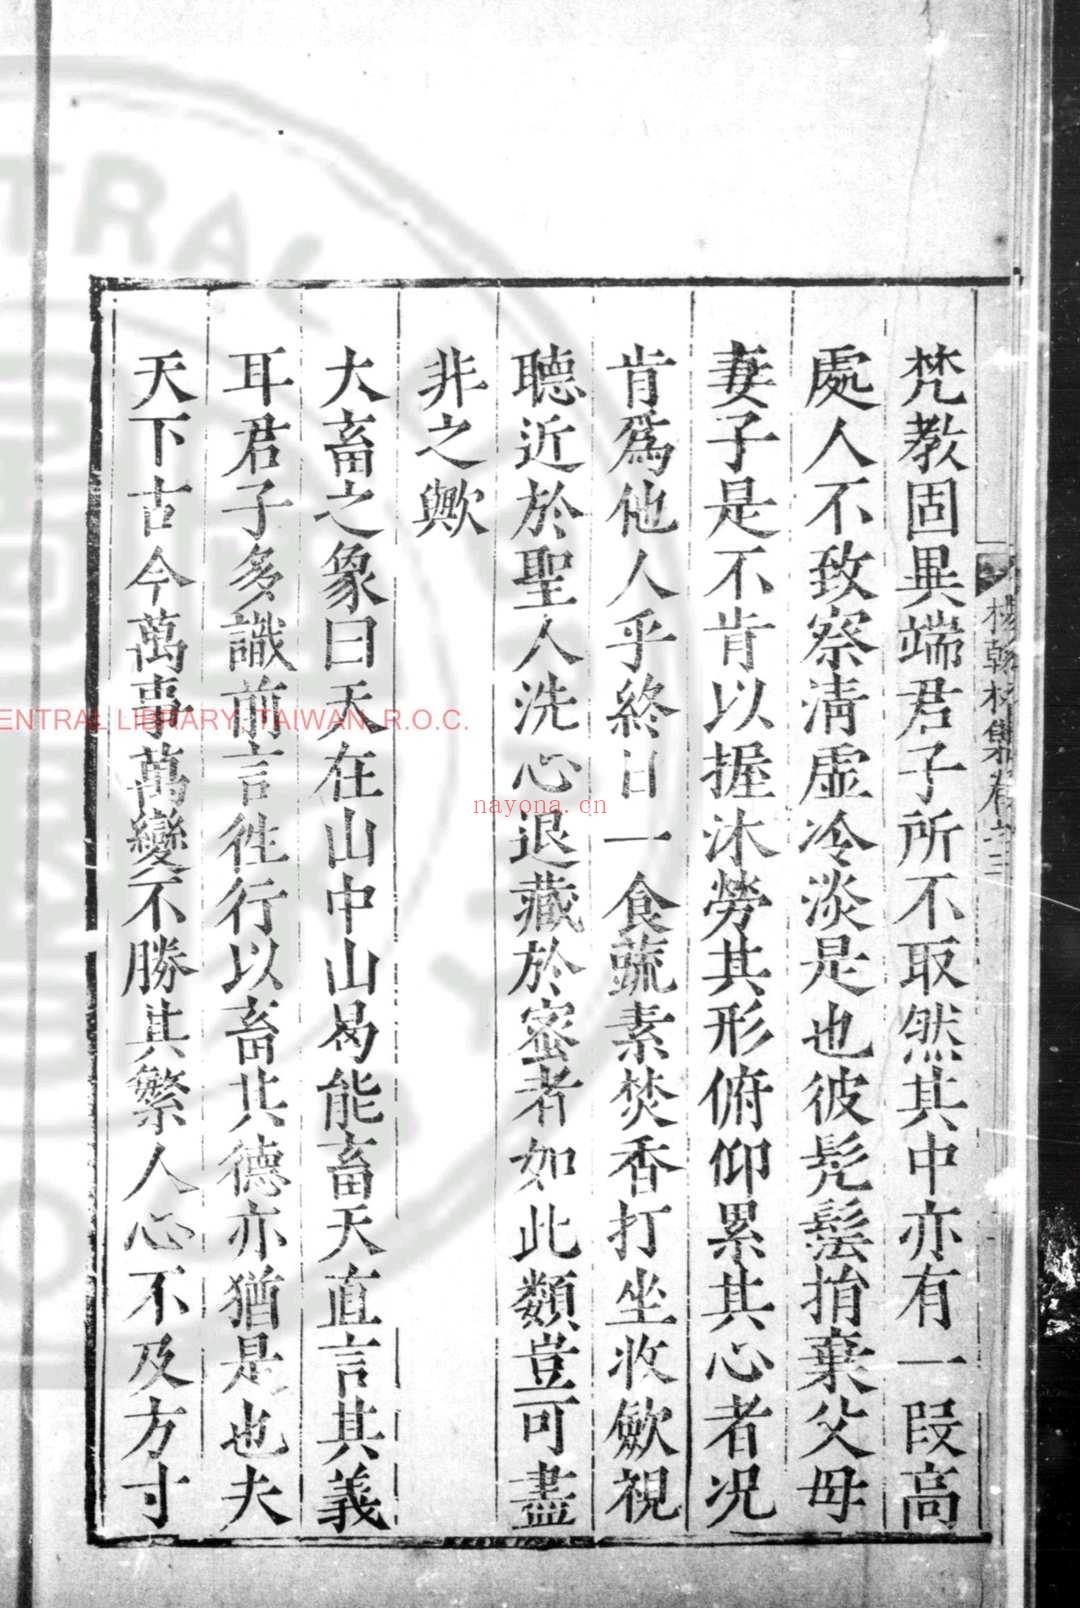 梵教固異端君子所不取然其中亦有一段高
處人不致察淸虛冷淡是也彼髠髢捐棄父母
妻子是不肯以握沐勞其形俯仰累其心者况
肯爲他人乎終日一食蔬素焚香打坐收歛視
聽近於聖人洗心退藏於密者如此類豈可盡
非之歟
大畜之象曰天在山中山曷能畜天直言其義
耳君子多識前言徃行以畜其德亦猶是也夫
天下古今萬事萬變不勝其繁人心不及方寸
楊翰林集卷之三
ENTRAL LIBRARY, TAIWAN, R.O.C.
nayona.cn